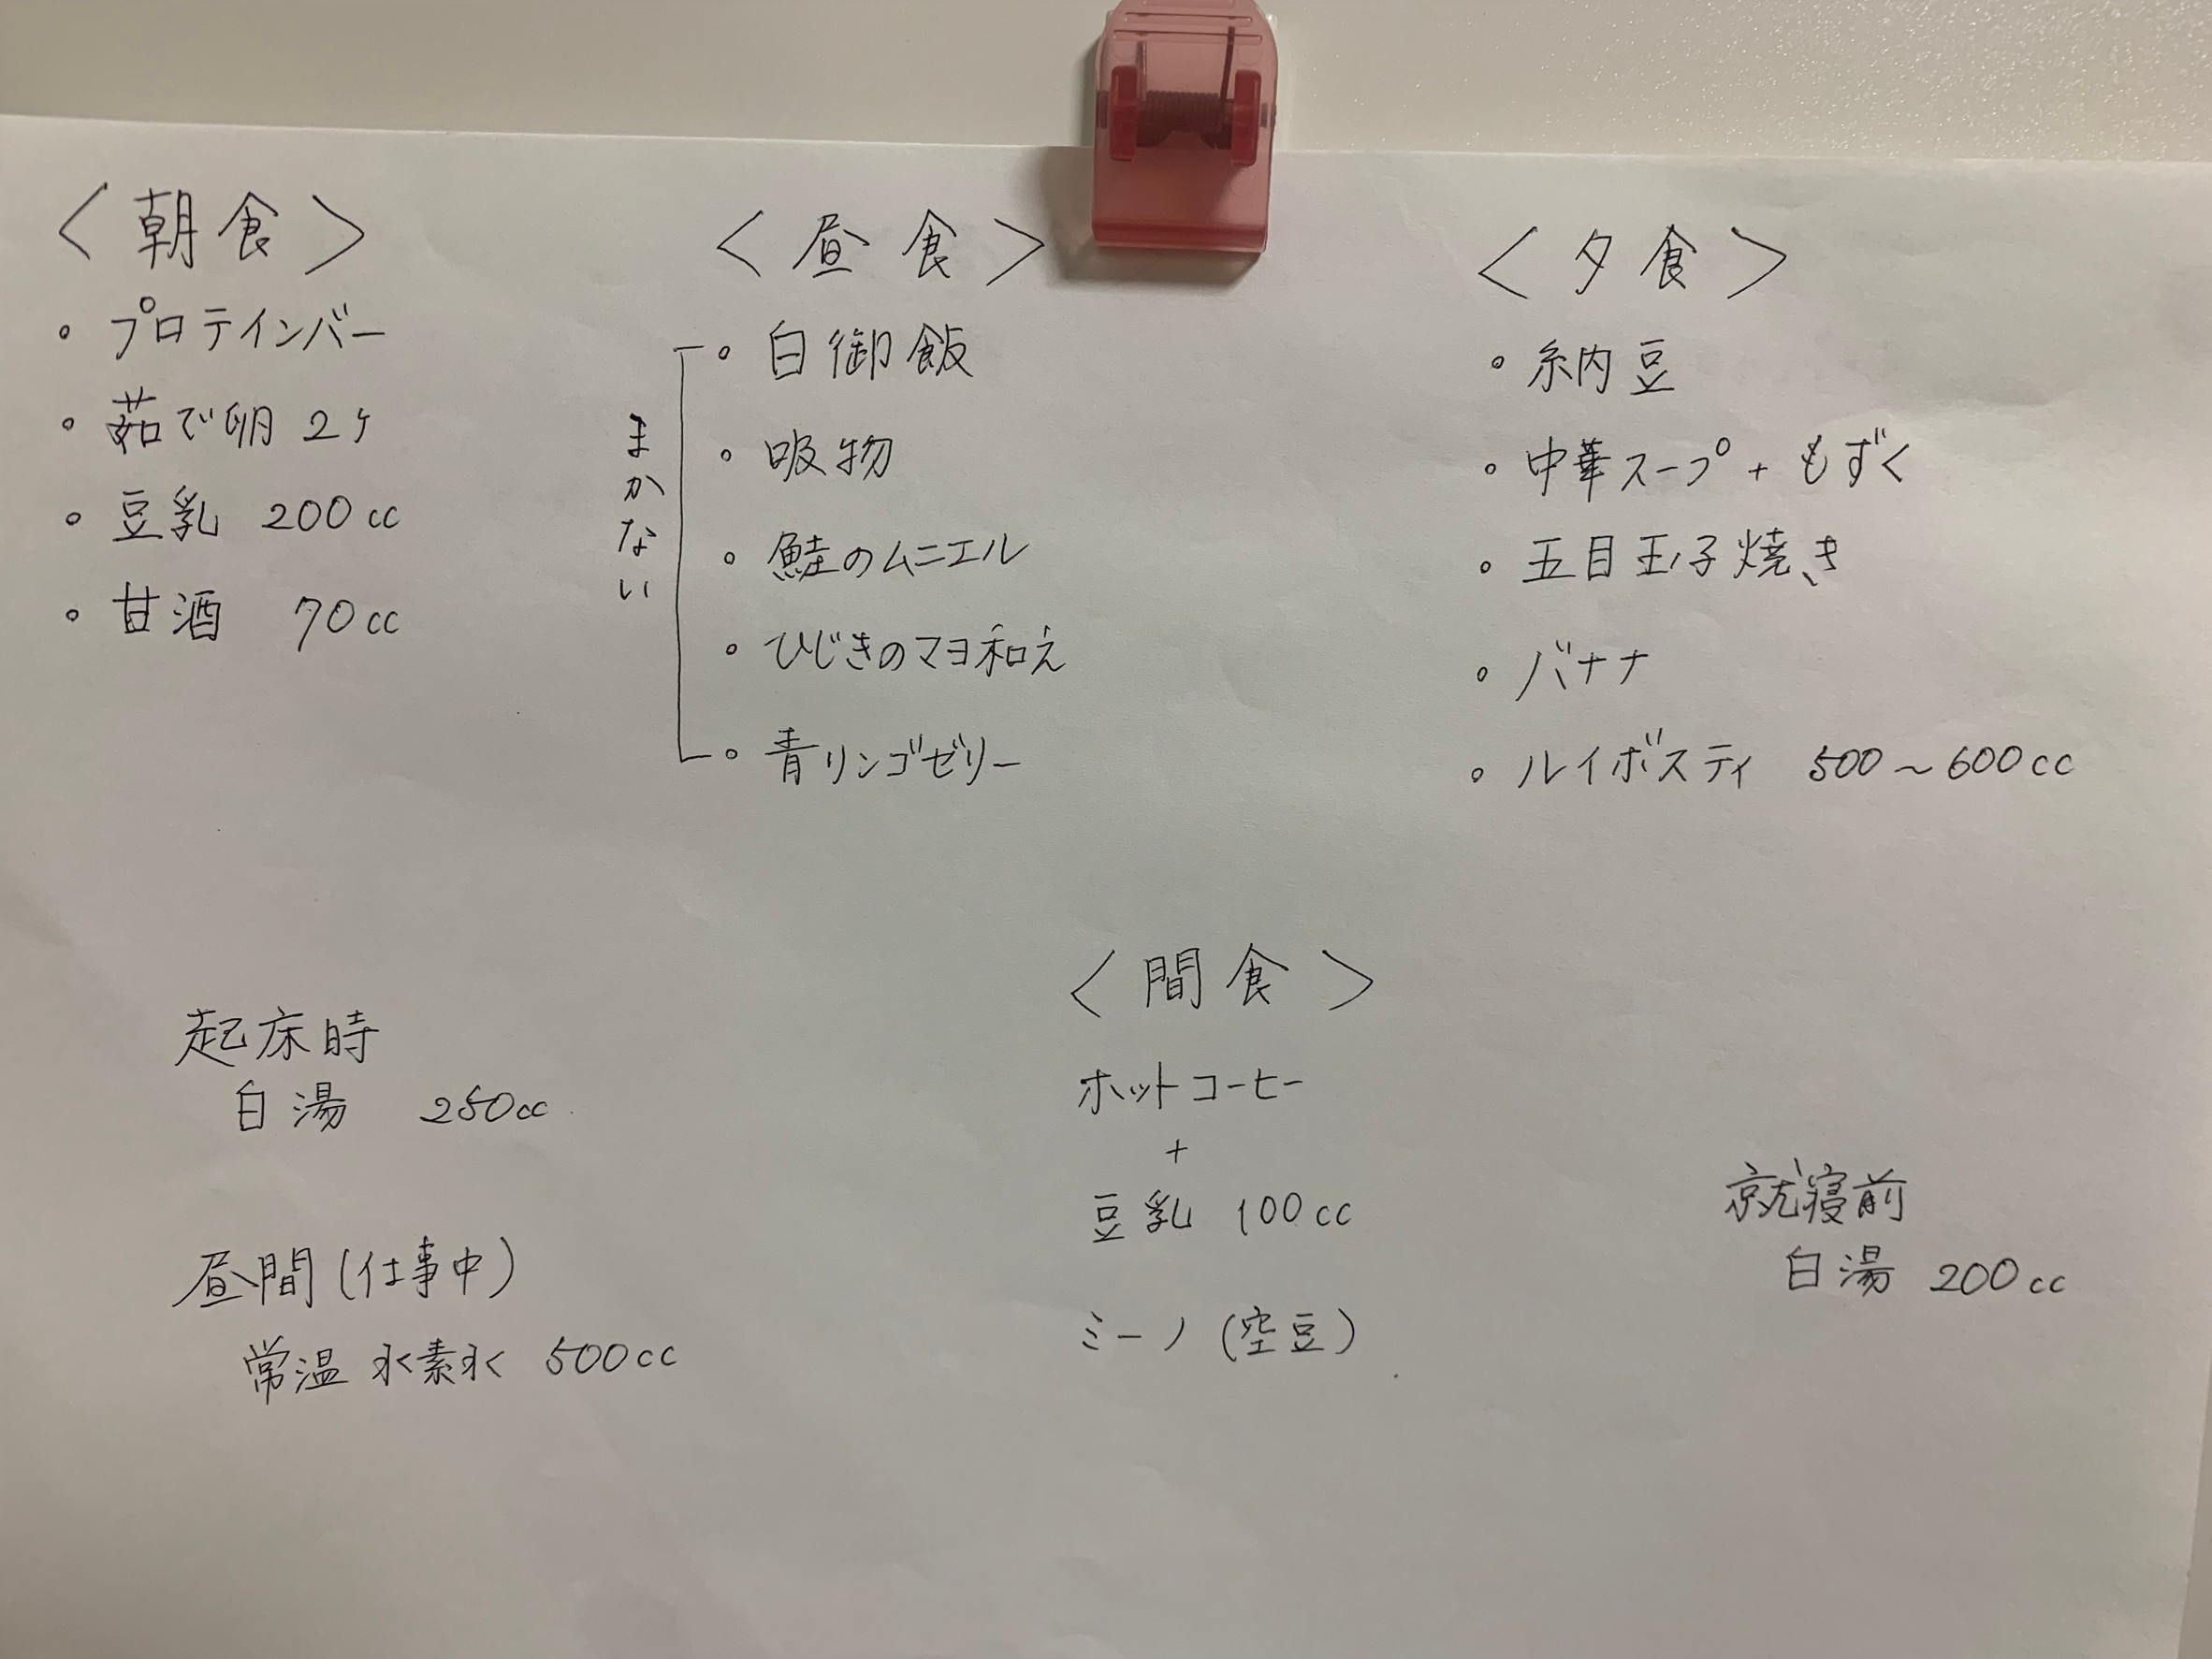 <朝食>
・プロテインバー
・茹で卵 2ヶ
・豆乳 200cc
・甘酒 70cc
<昼食>
まかない
・白御飯
・吸物
・鮭のムニエル
・ひじきのマヨ和え
・青リンゴゼリー
<夕食>
・納豆
・中華スープ+もずく
・五目玉子焼き
・バナナ
・ルイボスティ 500〜600cc
起床時
白湯 250cc
昼間(仕事中)
常温 水素水 500cc
<間食>
ホットコーヒー
+
豆乳 100cc
ミーノ(空豆)
就寝前
白湯 200cc